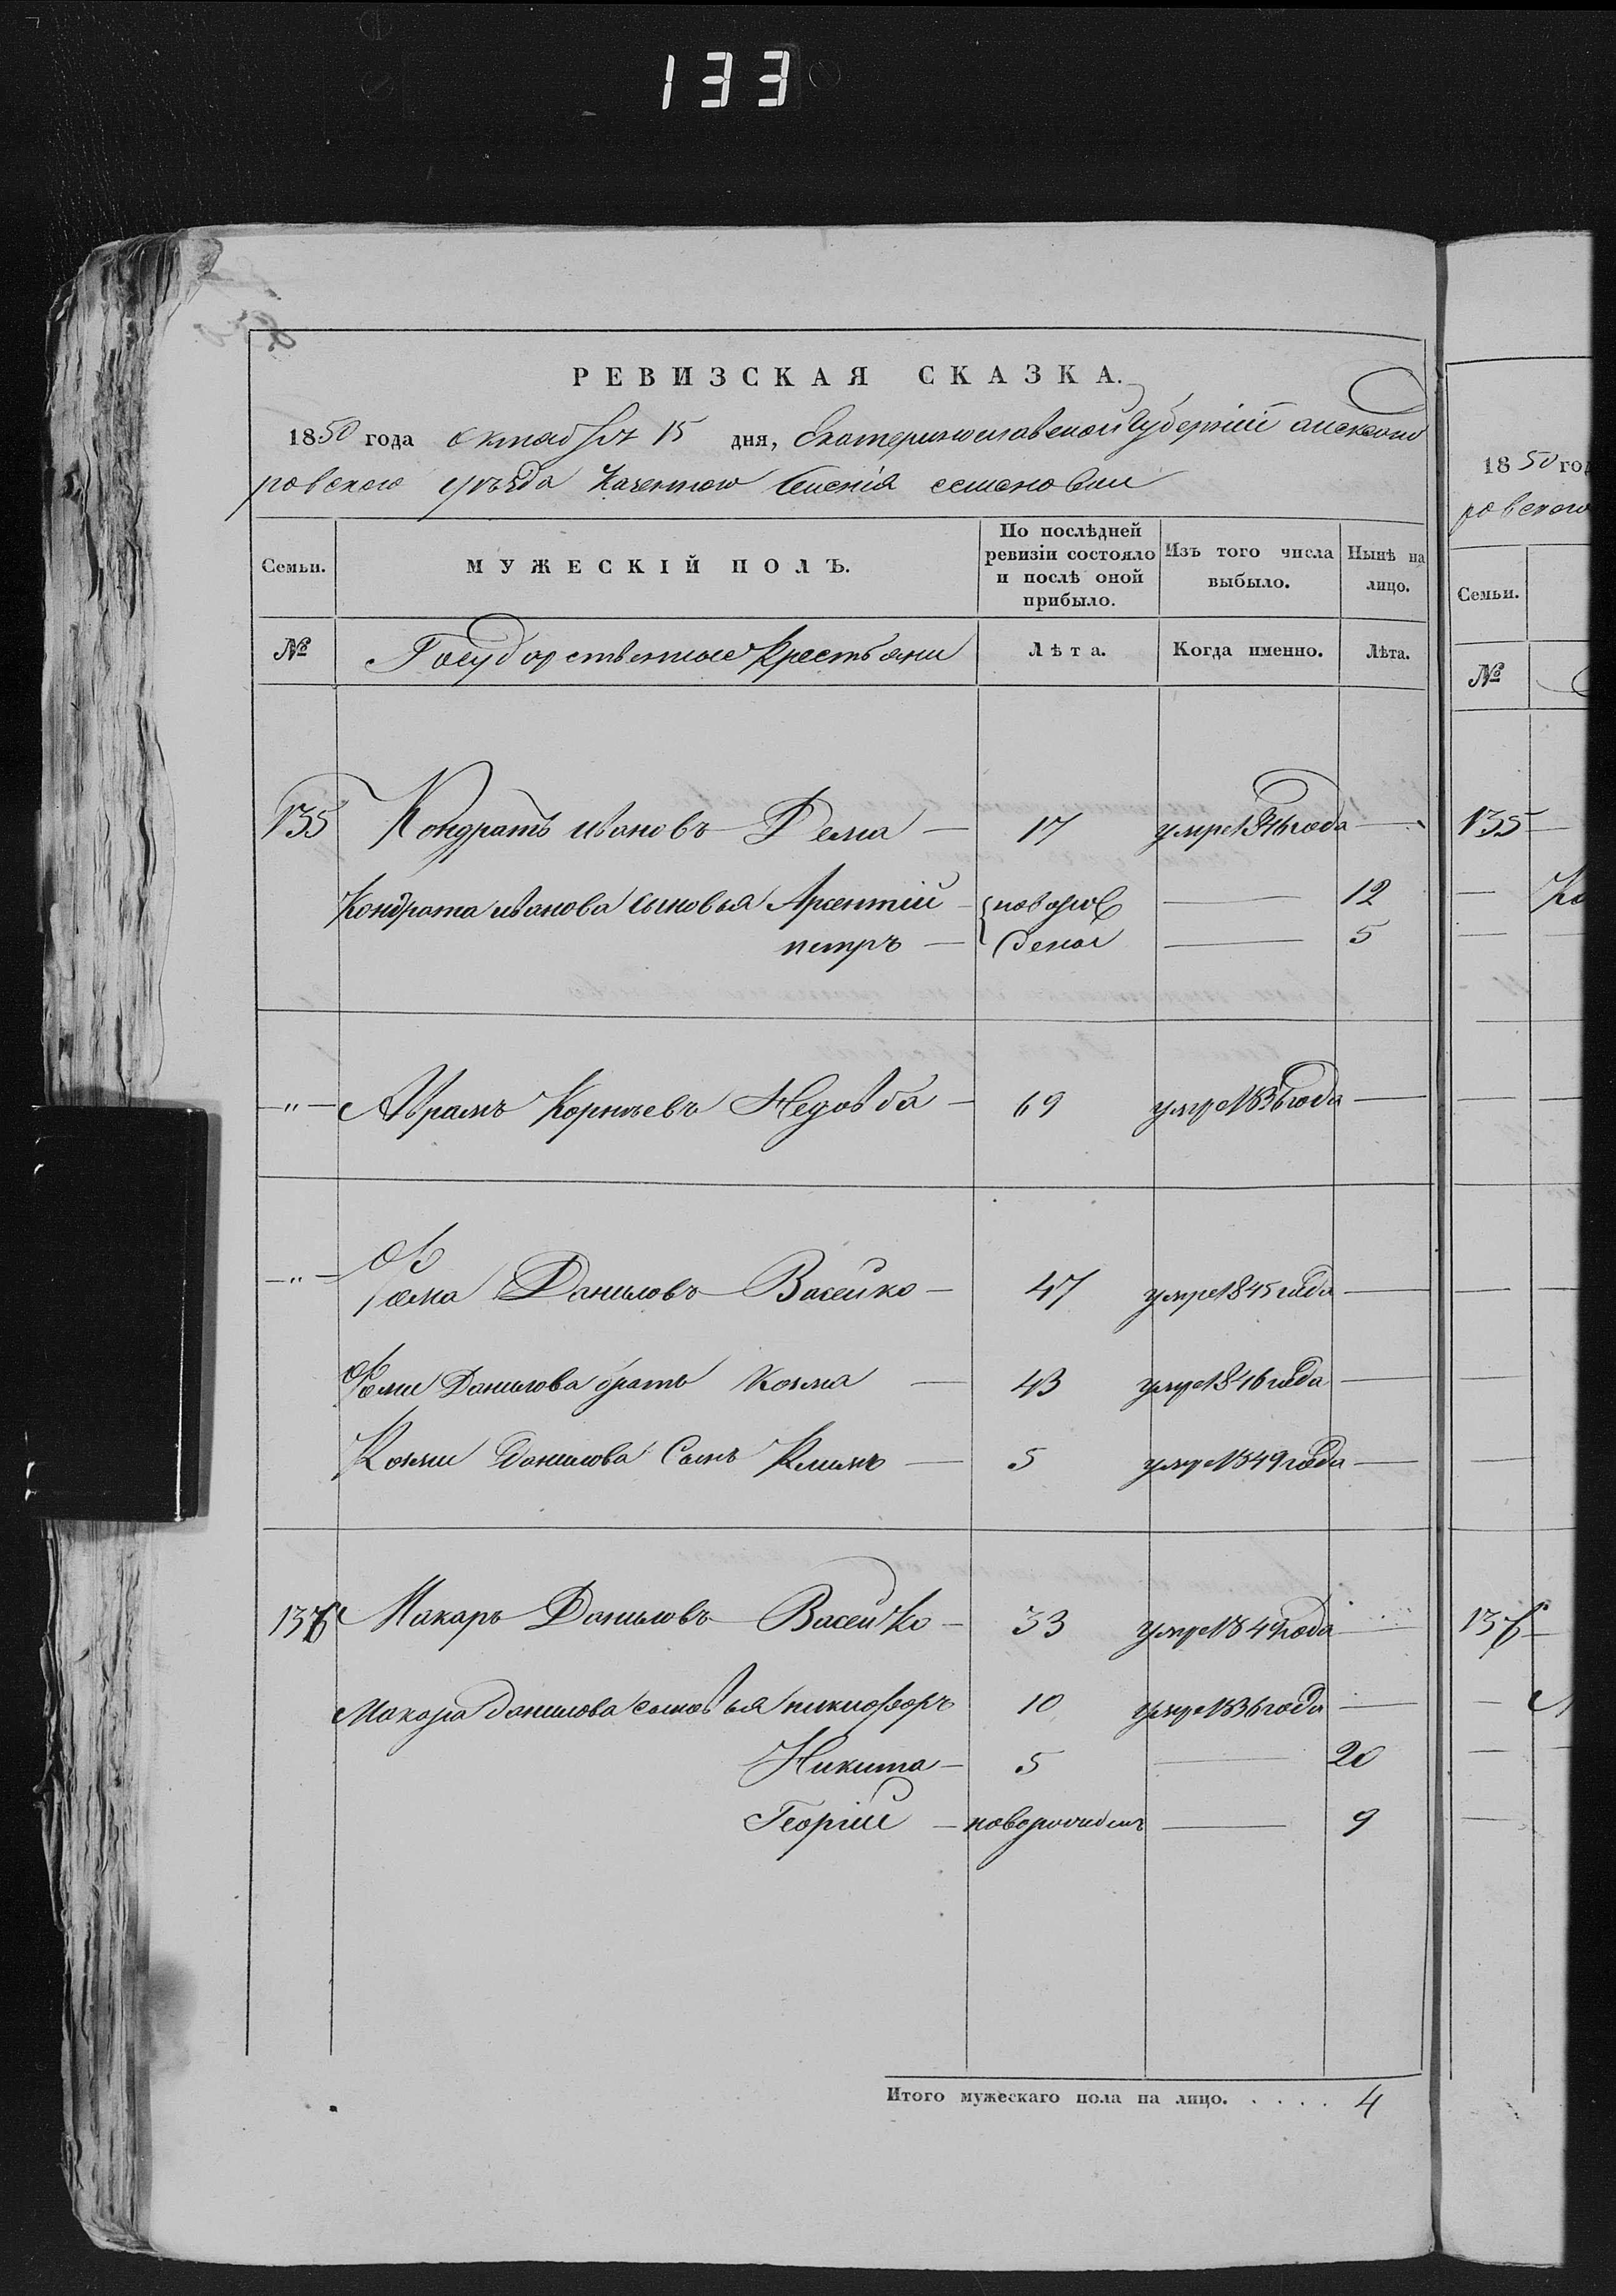 133
РЕВИЗСКАЯ СКАЗКА.
1850 года октября 15 дня, Екатеринославской Губерніи александ
ровского уезда казенного Селенія семеновки
Семьи. МУЖЕСКІЙ ПОЛЪ. По послѣдней ревизіи состояло и послѣ оной прибыло. Изъ того числа выбыло. Нынѣ на лицо.
№ Государственные Крестьяни Лѣта. Когда именно. Лѣта.
135 Кондратъ ивановъ Дема — 17 умре года —
Кондрата иванова сыновья Арсентій — новорож — 12
петръ — дены — 5
—"— Аврамъ Корнѣевъ — 69 умре 1836 года —
—"— Фома Даниловъ Васейко — 47 умре 1845 года —
Фомы Данилова братъ козма — 43 умре 1846 года —
Козмы Данилова Сынъ Климъ — 5 умре 1849 года —
136 Макаръ Даниловъ Васейко — 33 умре 184 года —
Макара данилова сыновья никифоръ 10 умре 1836 года —
Никита — 5 — 20
Георгій — новорожденъ — 9
Итого мужескаго пола на лицо. . . . . 4
1850 год
ровского
Семьи.
№
135 —
136 —